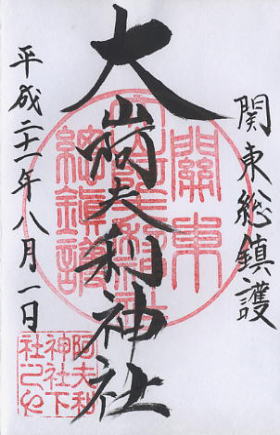 関東総鎮護
大山阿夫利神社
平成二十一年八月一日
關東
總鎮護
阿夫利
神社下
社之印